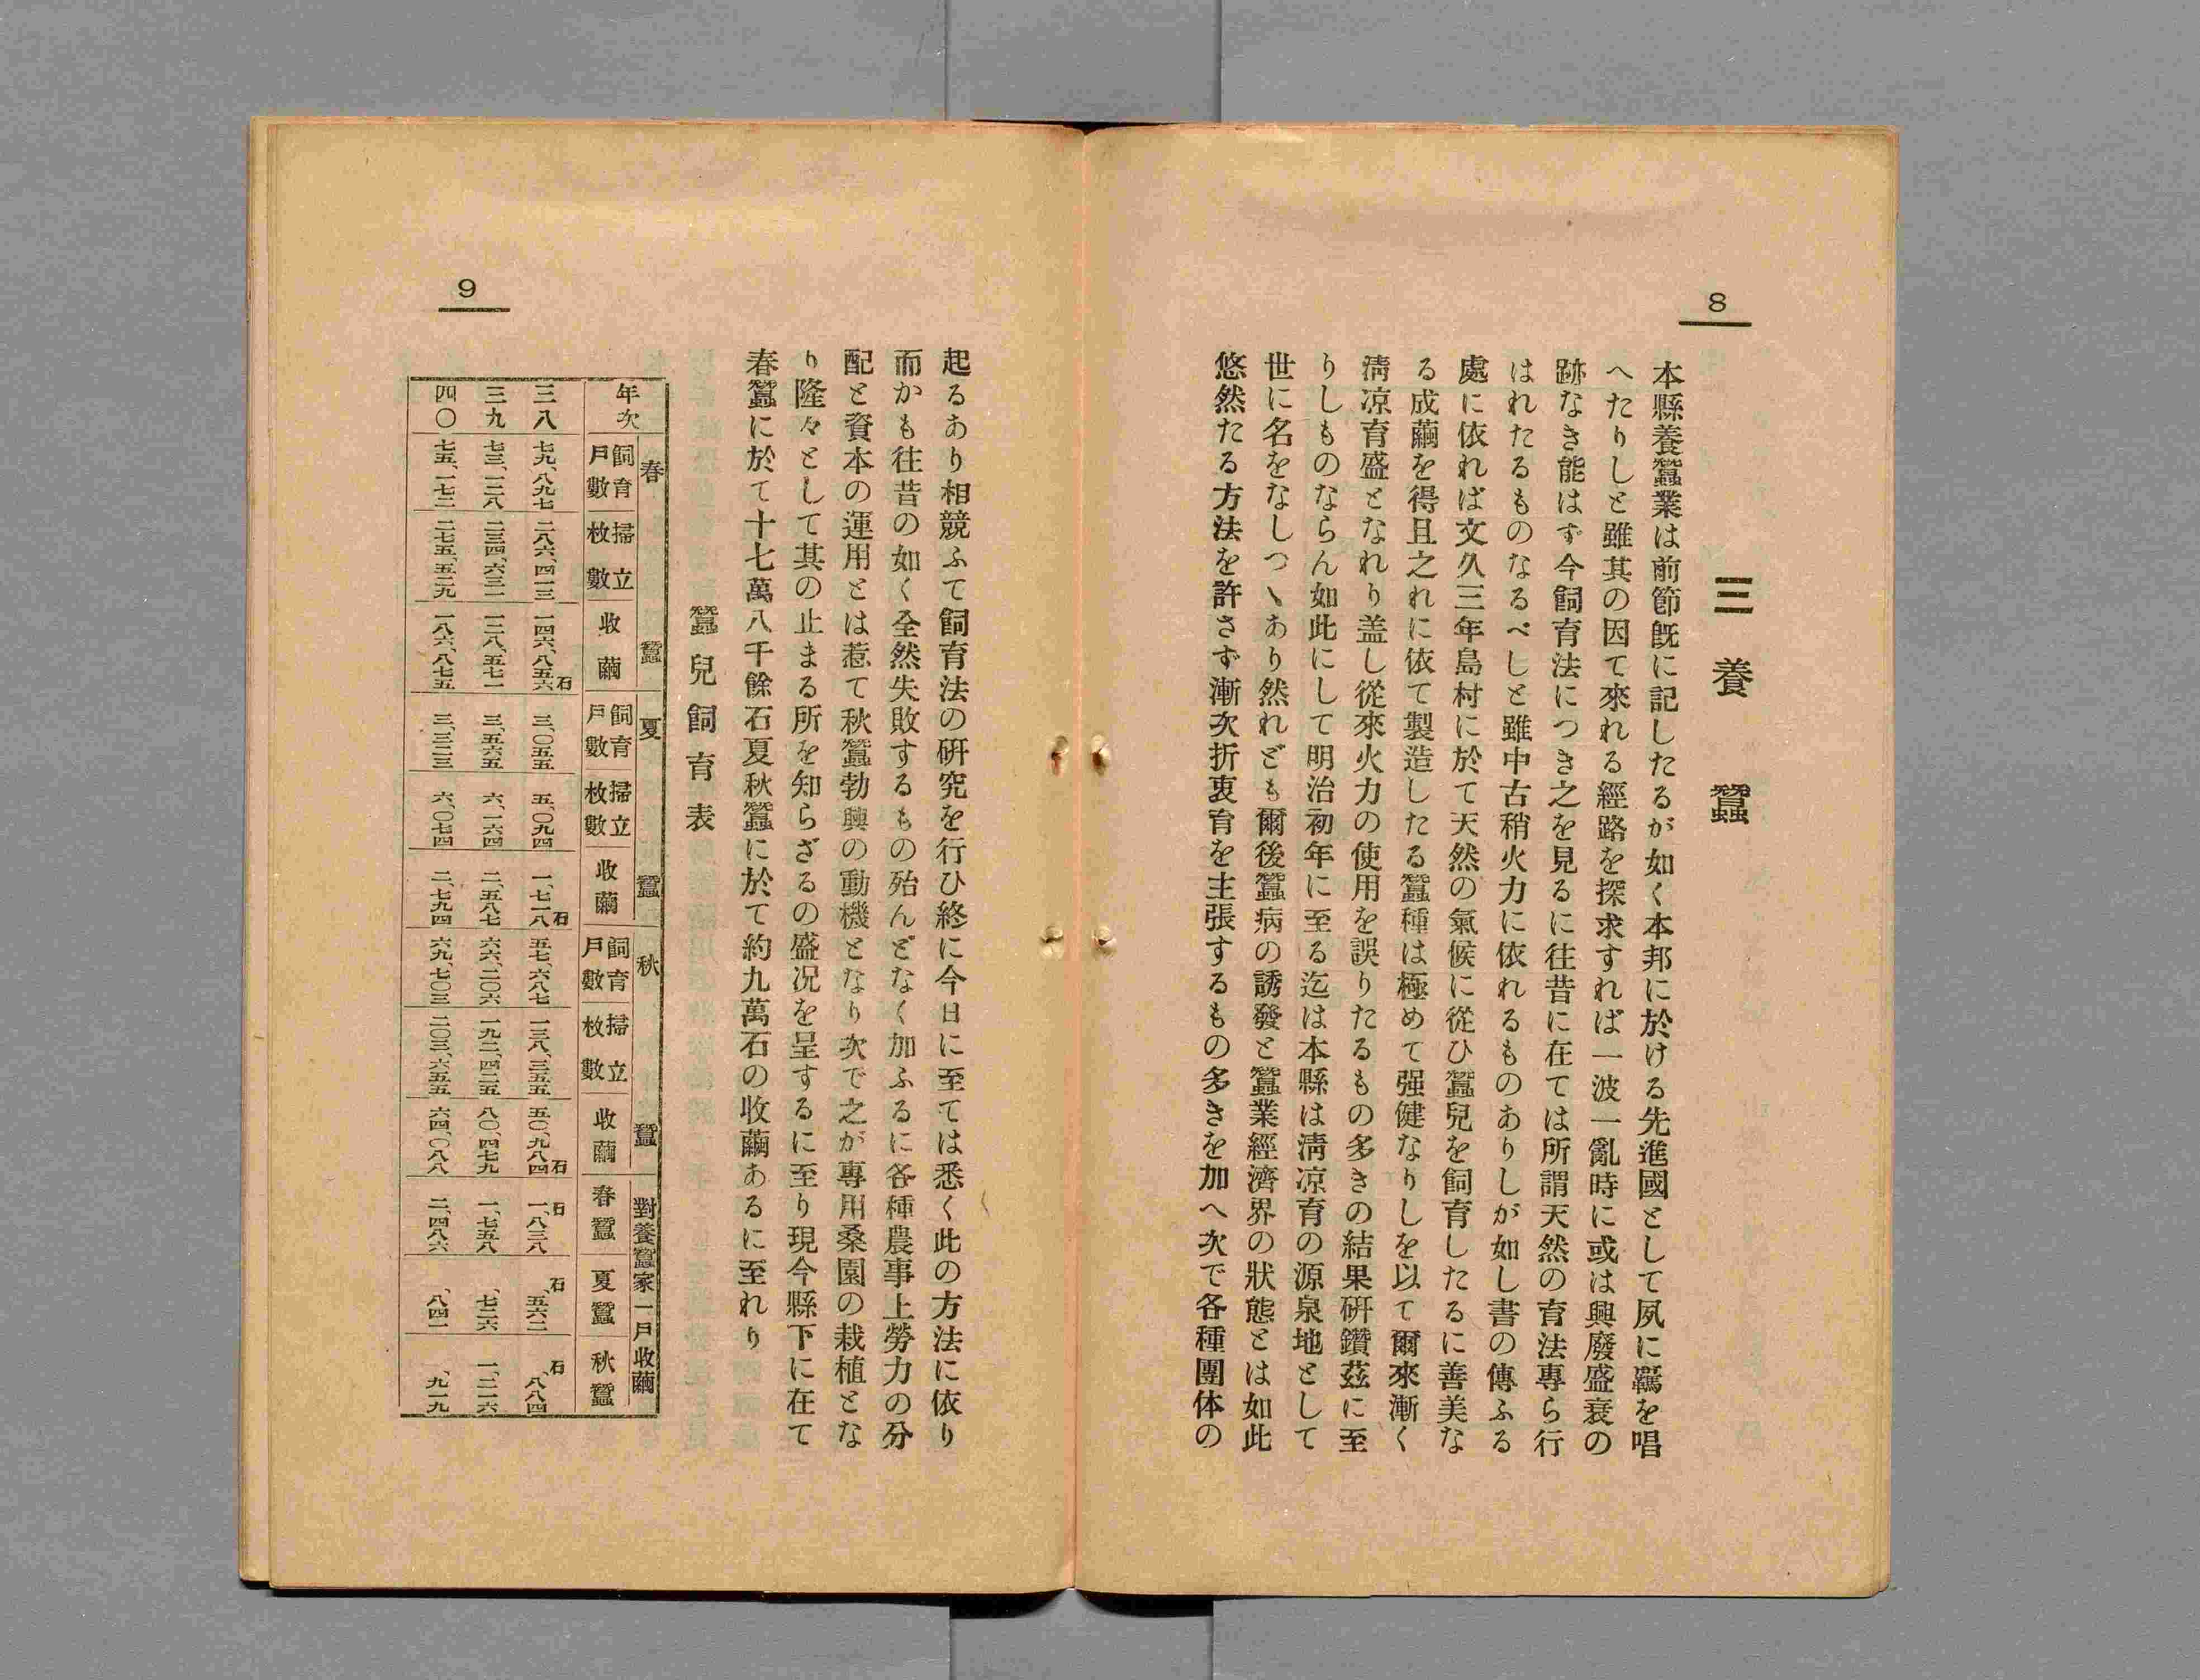 8
三 養 蠶
本縣養蠶業は前節旣に記したるが如く本邦に於ける先進國として夙に覊を唱
へたりしと雖其の因て來れる經路を探求すれば一波一亂時に或は興廢盛衰の
跡なき能はず今飼育法につき之を見るに往昔に在ては所謂天然の育法專ら行
はれたるものなるべしと雖中古稍火力に依れるものありしが如し書の傳ふる
處に依れば文久三年島村に於て天然の氣候に從ひ蠶兒を飼育したるに善美な
る成繭を得且之れに依て製造したる蠶種は極めて强健なりしを以て爾來漸く
淸凉育盛となれり盖し從來火力の使用を誤りたるもの多きの結果硏鑽茲に至
りしものならん如此にして明治初年に至る迄は本縣は淸凉育の源泉地として
世に名をなしつゝあり然れども爾後蠶病の誘發と蠶業經濟界の狀態とは如此
悠然たる方法を許さず漸次折衷育を主張するもの多きを加へ次で各種團体の
9
起るあり相競ふて飼育法の硏究を行ひ終に今日に至ては悉く此の方法に依り
而かも往昔の如く全然失敗するもの殆んどなく加ふるに各種農事上勞力の分
配と資本の運用とは惹て秋蠶勃興の動機となり次で之が專用桑園の栽植とな
り隆々として其の止まる所を知らざるの盛况を呈するに至り現今縣下に在て
春蠶に於て十七萬八千餘石夏秋蠶に於て約九萬石の收繭あるに至れり
蠶兒飼育表
年次 春蠶 夏蠶 秋蠶 對養蠶家一戶收繭
飼育戶數 掃立枚數 收繭 飼育戶數 掃立枚數 收繭 飼育戶數 掃立枚數 收繭 春蠶 夏蠶 秋蠶
三八 七九、八九七 二八六、四一三 一四六、八五六石 三、〇五五 五、〇九四 一、七一八石 五七、六八七 一三八、三五五 五〇、九八四石 一、八三八石 、五六二石 、八八四石
三九 七三、一二八 二三四、六三一 一二八、五七一 三、五六五 六、一六四 二、五八七 六六、二〇六 一九二、四二五 八〇、四七九 一、七五八 、七二六 一、二一六
四〇 七五、一七二 二七五、五二九 一八六、八七五 三、三二三 六、〇七四 二、七九四 六九、七〇三 二〇三、六五五 六四、〇八八 二、四八六 、八四一 、九一九